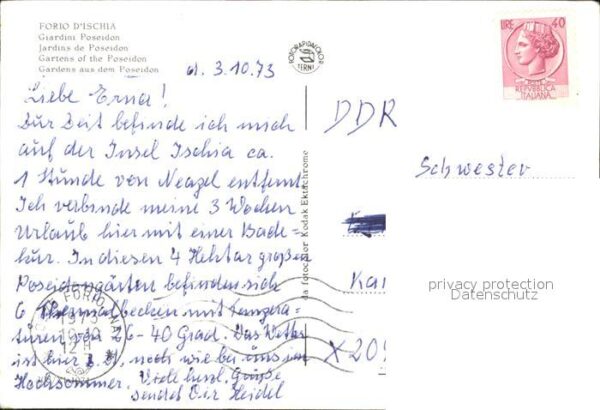 FORIO D'ISCHIA
Giardini Poseidon
Jardins de Poseidon
Gartens of the Poseidon
Gardens aus dem Poseidon
d. 3.10.73
Liebe Erna!
Zur Zeit befinde ich mich
auf der Insel Ischia ca.
1 Stunde von Neapel entfernt
Ich verbinde meine 3 Wochen
Urlaub hier mit einer Bade-
kur. In diesen 4 Hektar großen
Poseidongärten befinden sich
6 Thermalbecken mit Tempera-
turen von 26-40 Grad. Das Wetter
ist hier z. Zt. noch wie bei uns im
Hochsommer. Viele herzl. Grüße
sendet Dir Heidel
da fotocolor Kodak Ektachrome
FOTORAPIDACOLOR
TERNI
LIRE 40
POSTE
REPVBBLICA
ITALIANA
DDR
Schwester
Kar
X 209
FORIO (NA)
1973
12 H
privacy protection
Datenschutz